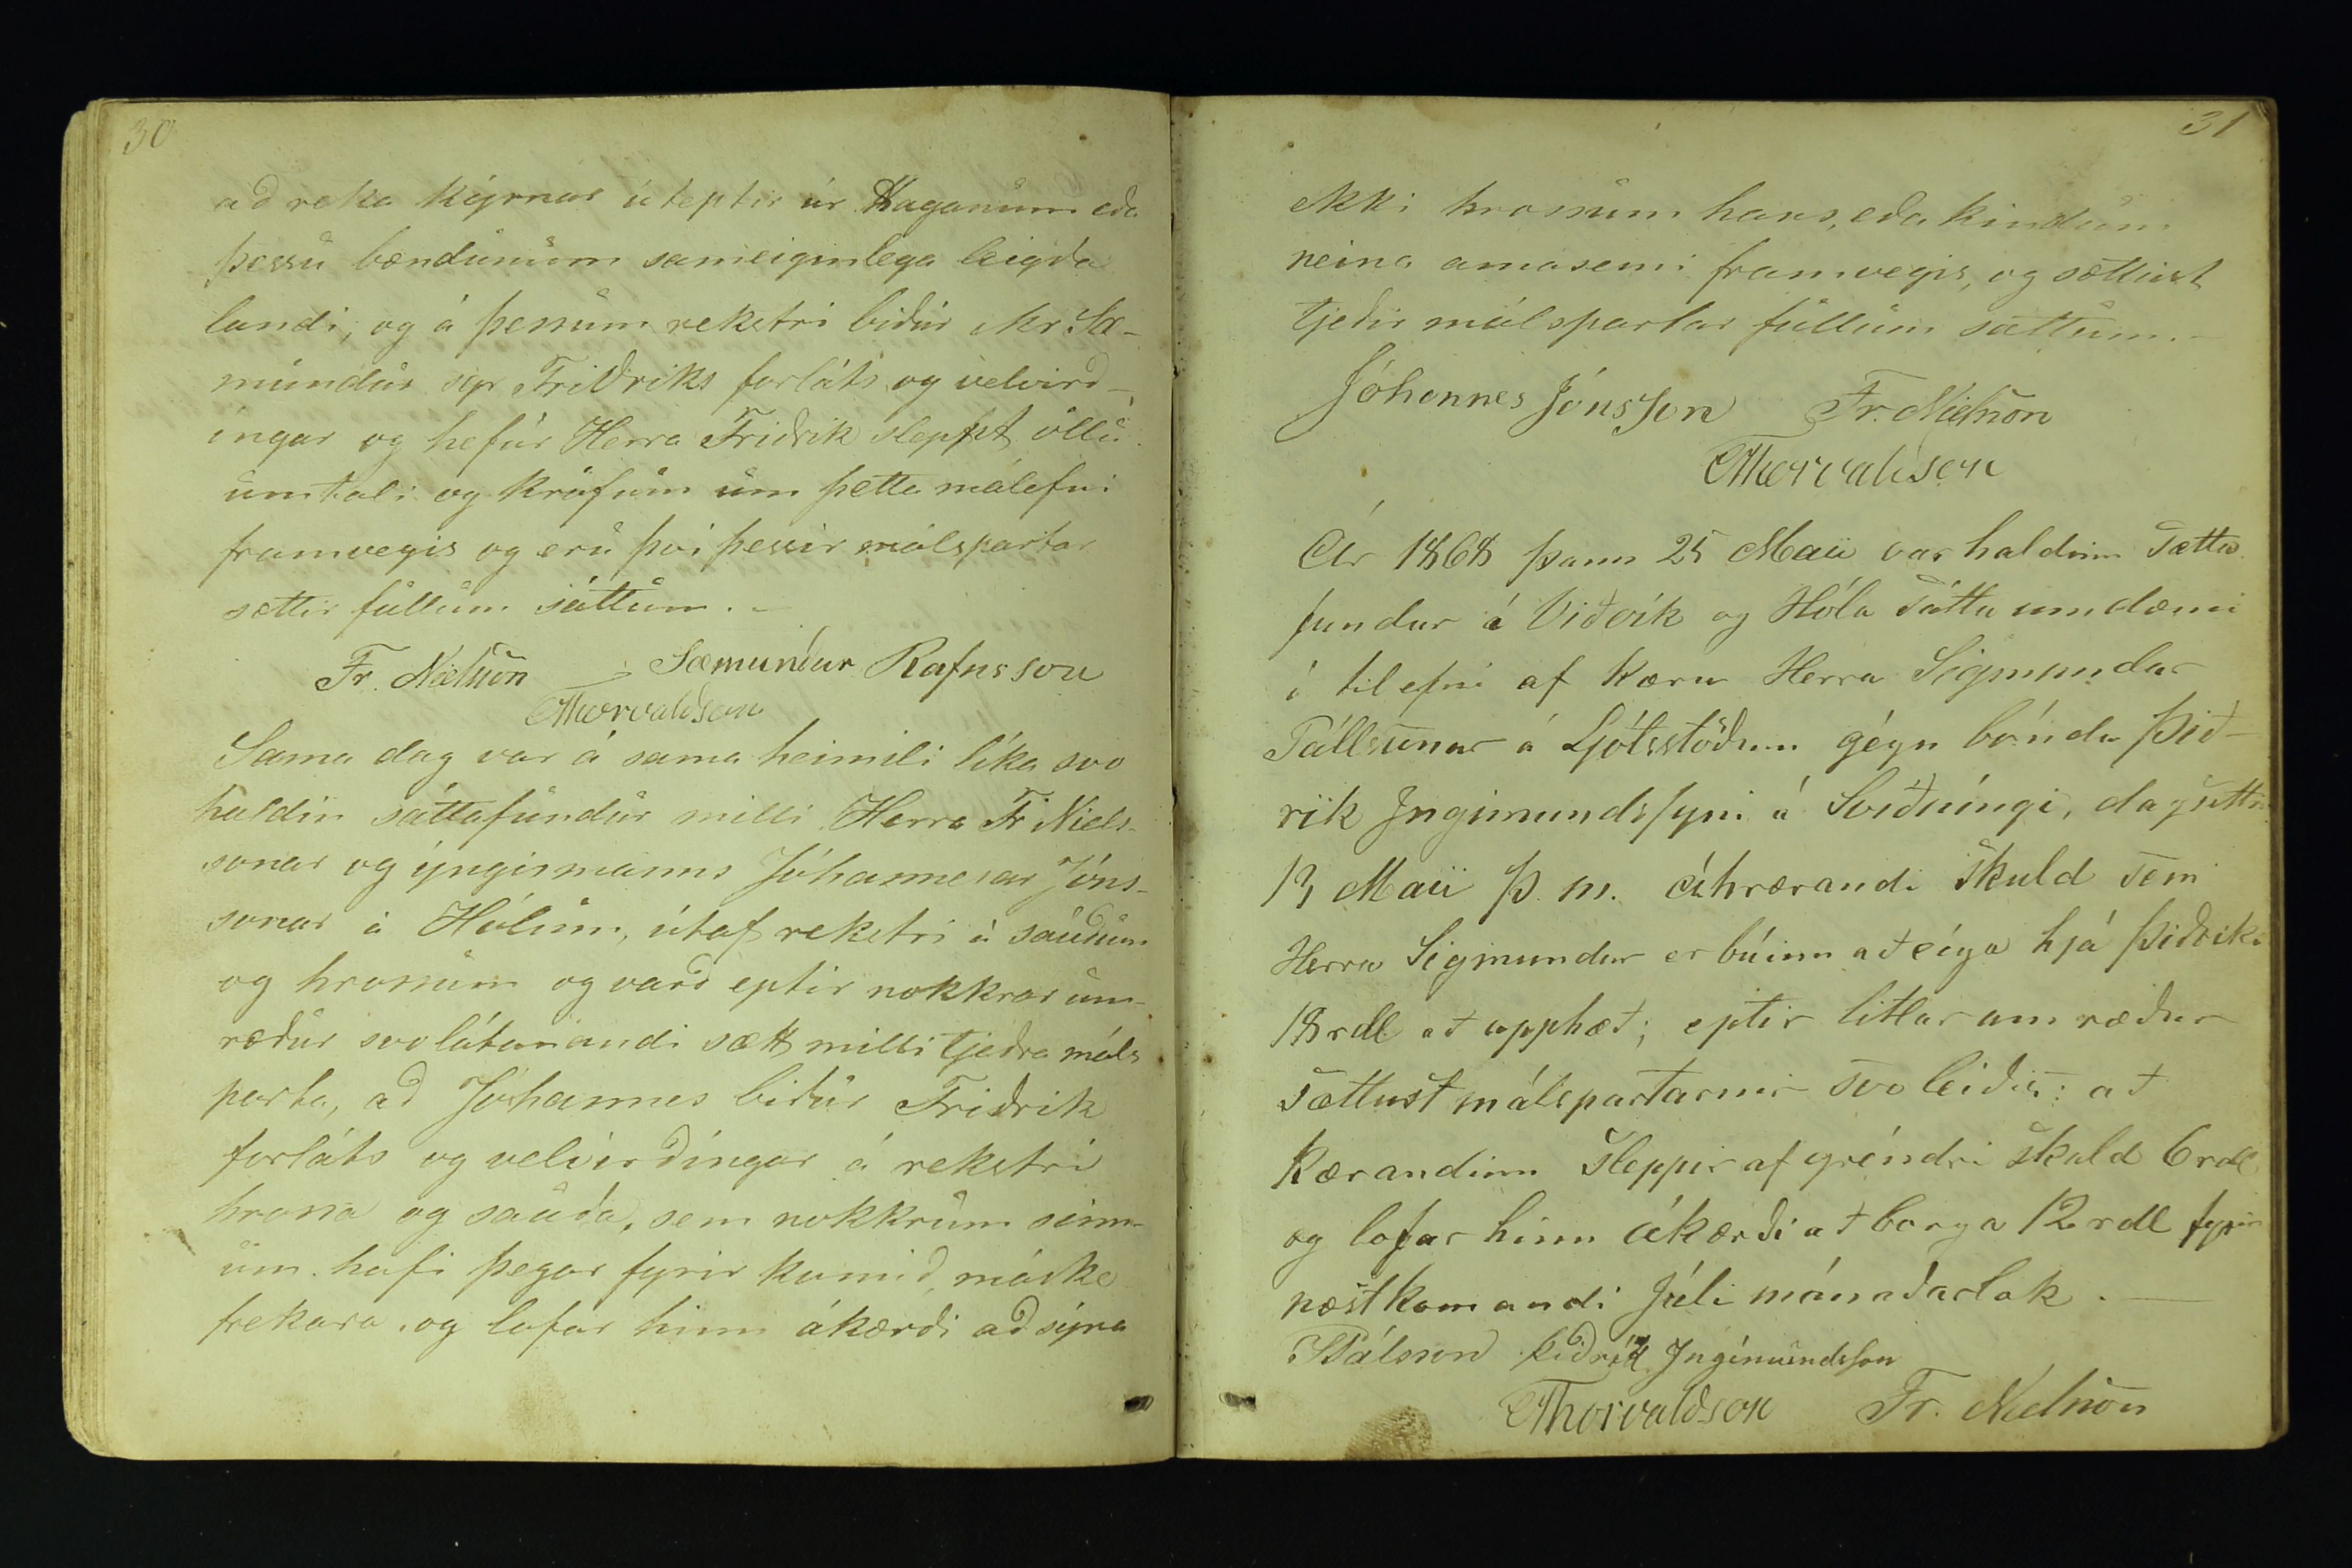 30
að reka kýrnar úteptir úr Haganum eða
þessu bændunum sameiginlega leigða
landi, og á þessum rekstri biður Mr Sæ-
mundur sgr Friðriks forláts og velvird-
ingar og hefur Herra Friðrik sleppt öllu
umtali og kröfum um þetta málefni
framvegis og eru því þessir málspartar
sættir fullum sáttum. –
Fr. Nielsson Sæmundur Rafnsson
Thorvaldson
Sama dag var á sama heimili líka svo
haldin sáttafundur milli Herra Fr Niels-
sonar og yngismanns Jóhannesar Jóns-
sonar á Hólum, útaf rekstri á sauðum
og hrossum og varð eptir nokkrar um-
ræður svolátandi sætt milli tjeðra máls
parta, að Jóhannes biður Friðrik
forláts og velvirðingar á rekstri
hrossa og sauða, sem nokkrum sinn-
um hafi þegar fyrir komið, máske
frekara, og lofar hinn ákærði að sýna
31
ekki hrossum hans, eða kindum
neina amasemi framvegis, og sættust
tjeðir málspartar fullum sáttum. –
Jóhannes Jónsson Fr. Nielsson
Thorvaldson
Ár 1868 þann 25 Maii var haldinn sætta
fundur á Viðvík og Hóla sáttaumdæmi
í tilefni af kæru Herra Sigmundar
Pállssonar á Ljótsstöðum gégn bónda Þið-
rik Ingimundssyni á Sviðníngi, dagsettri
13 Maii þ. m. áhrærandi skuld sem
Herra Sigmundur er búinn at eiga hjá Þiðriki
18 rdl at upphæð; eptir litlar umræður
sættust málspartarnir svoleiðis: at
Kærandinn sleppir af gréindri skuld 6 rdl
og lofar hinn ákærði at borga 12 rdl fyrir
næstkomandi Júli mánaðarlok. –
SPálsson Þiðrik Ingimundsson
Thorvaldson Fr. Nielsson